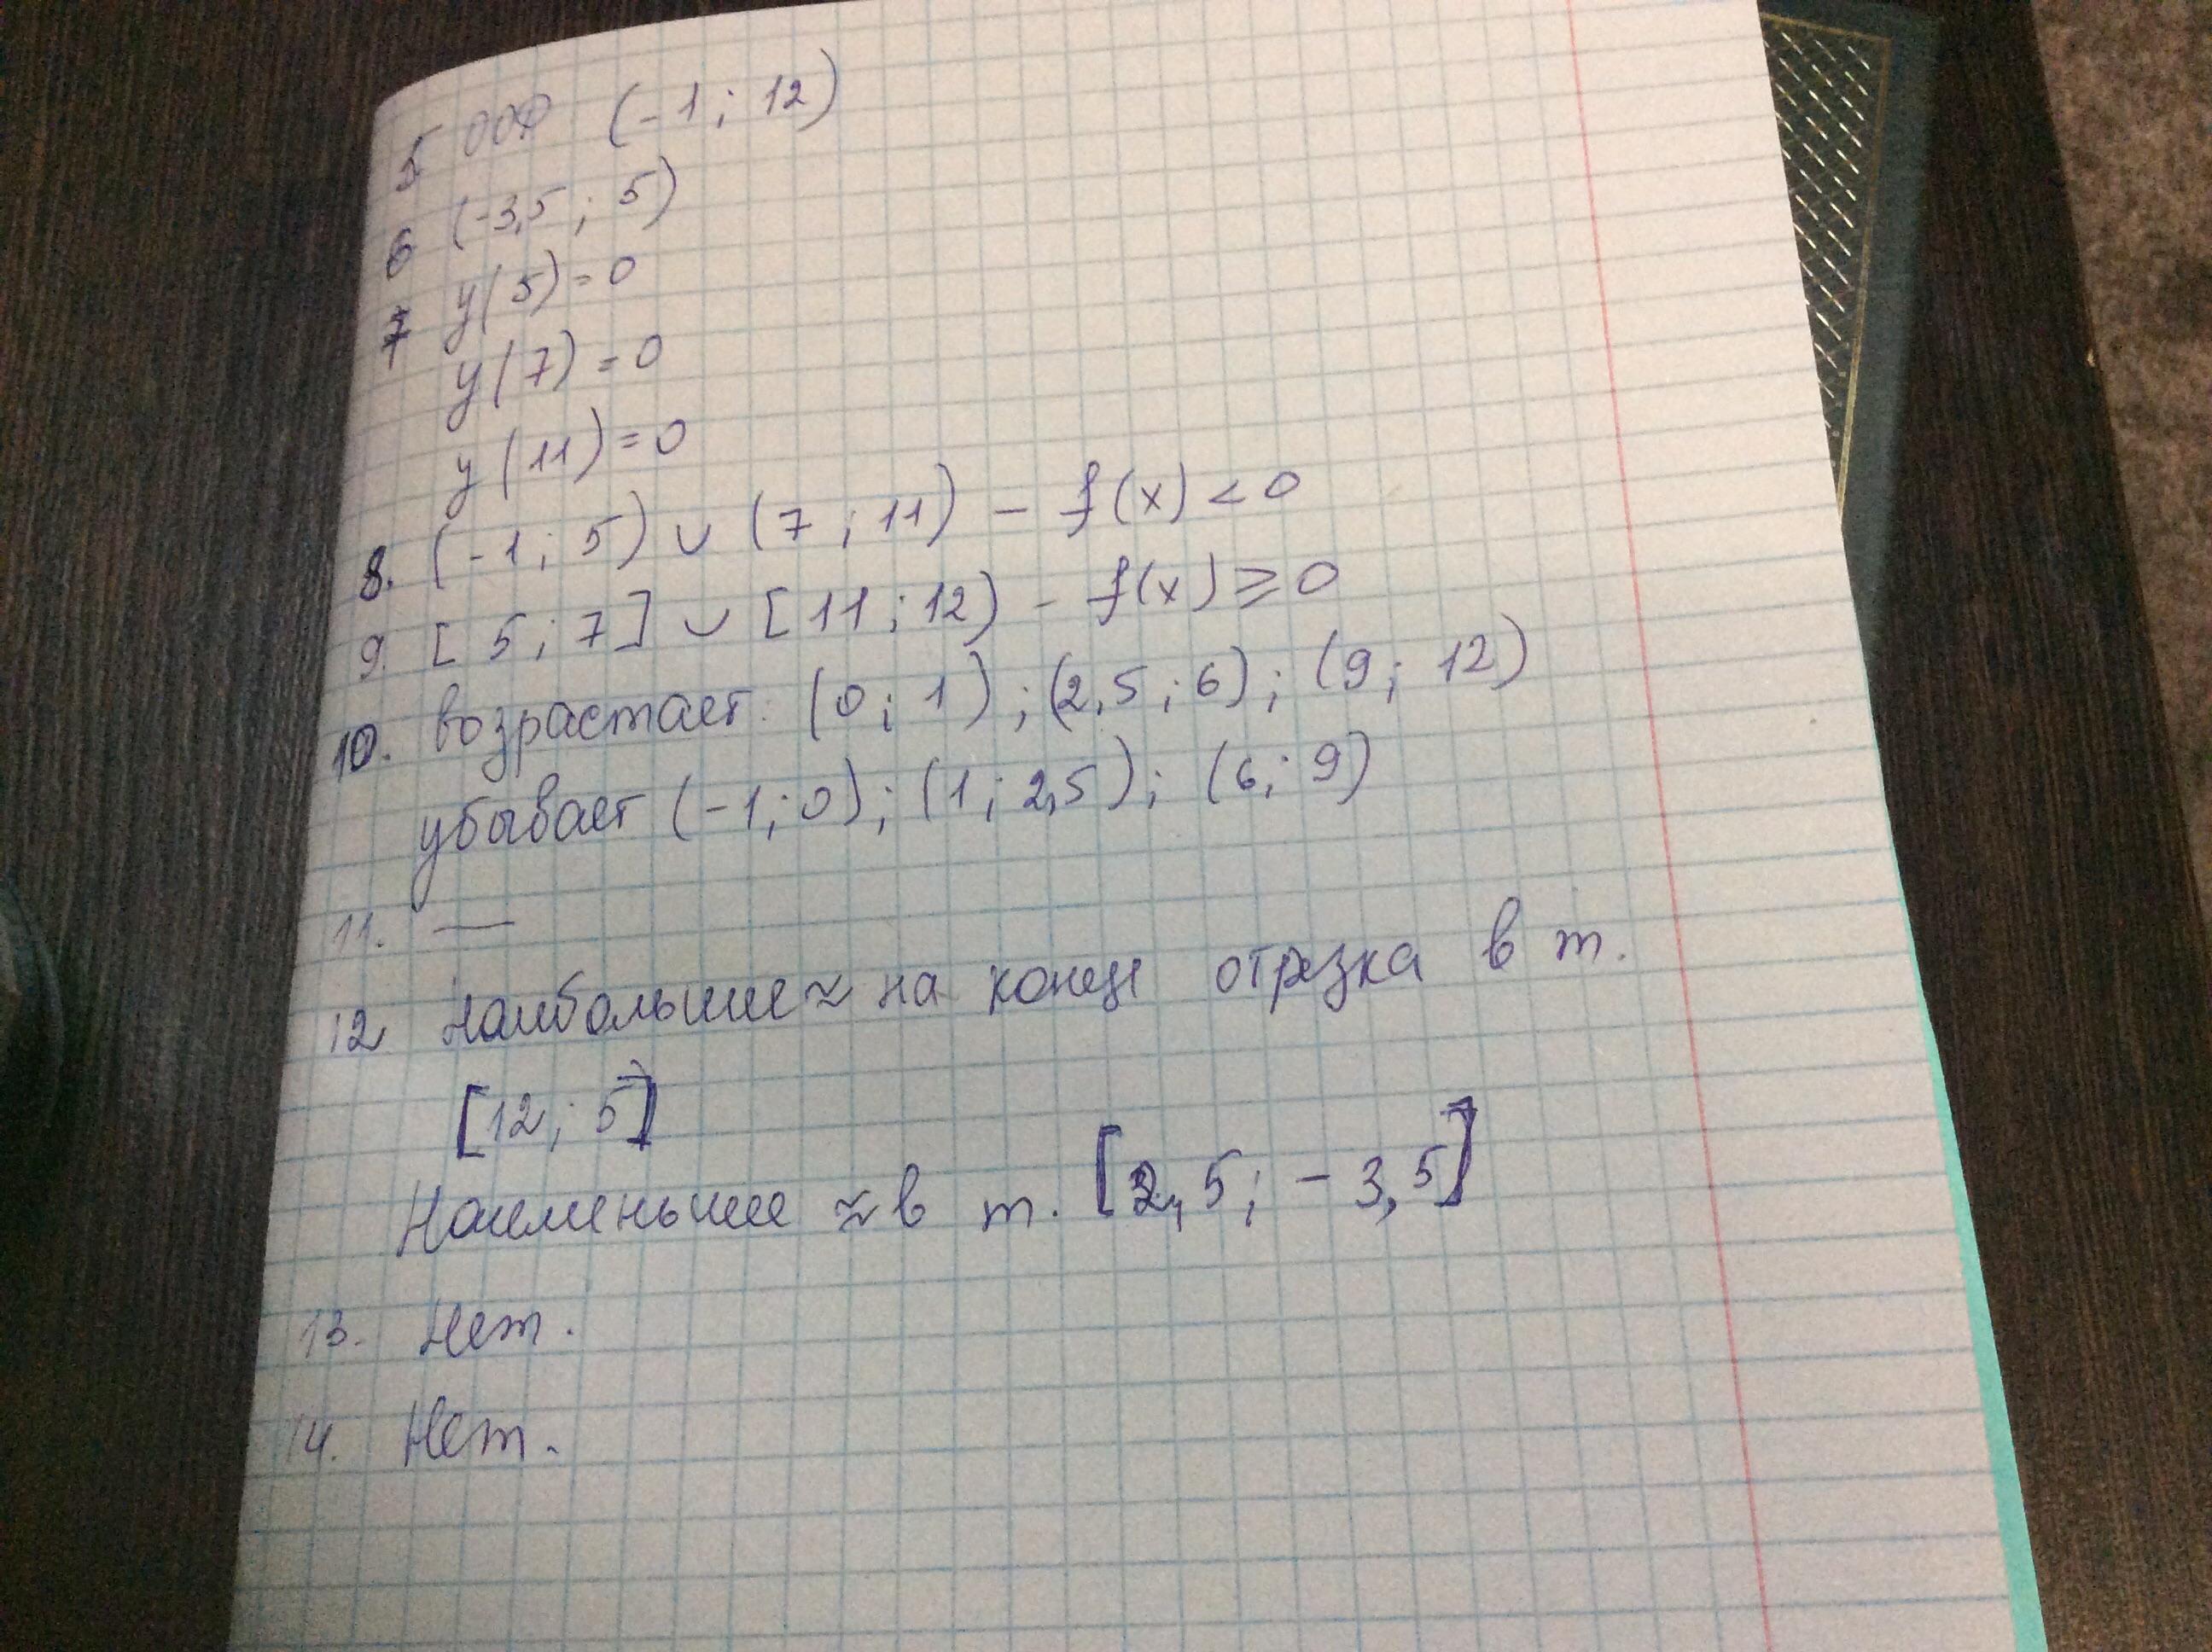 5 ООФ (-1; 12)
6 (-3,5; 5)
7 y(5)=0
y(7)=0
y(11)=0
8. (-1; 5) ∪ (7; 11) - f(x) < 0
9. [5; 7] ∪ [11; 12) - f(x) ≥ 0
10. возрастает: (0; 1); (2,5; 6); (9; 12)
убывает (-1; 0); (1; 2,5); (6; 9)
11. —
12 Наибольшее ≈ на конце отрезка в т.
[12; 5]
Наименьшее ≈ в т. [2,5; -3,5]
13. Нет.
14. Нет.